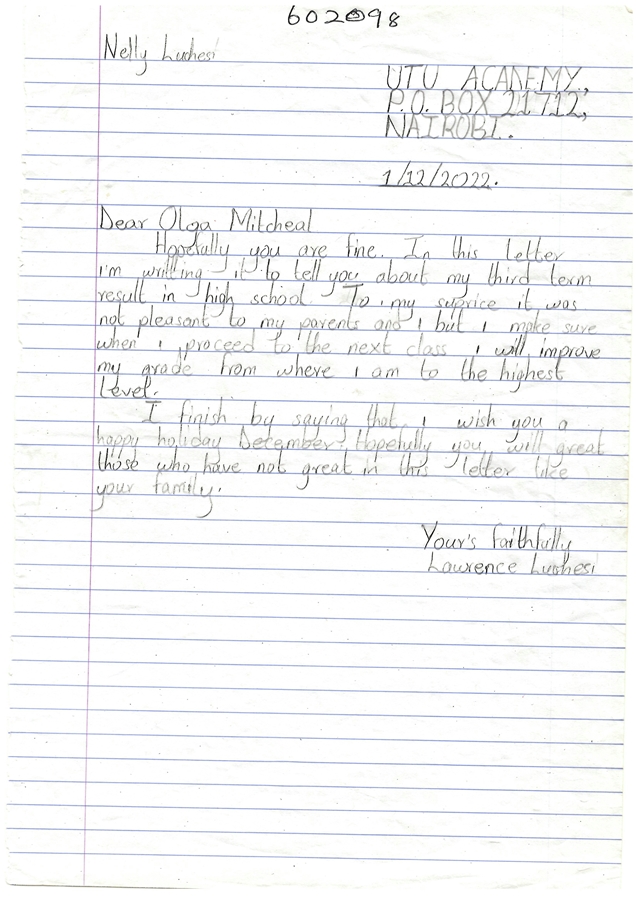 602098
Nelly Luchesi
UTU ACADEMY,
P.O. BOX 21712,
NAIROBI.
1/12/2022.
Dear Olga Mitcheal
Hopefully you are fine. In this letter
i'm writting it to tell you about my third term
result in high school. To my suprice it was
not pleasant to my parents and i but i make sure
when i proceed to the next class i will improve
my grade from where i am to the highest
level.
I finish by saying that i wish you a
happy holiday December. Hopefully you will great
those who have not great in this letter like
your family.
Your's faithfully
Lawrence Luchesi